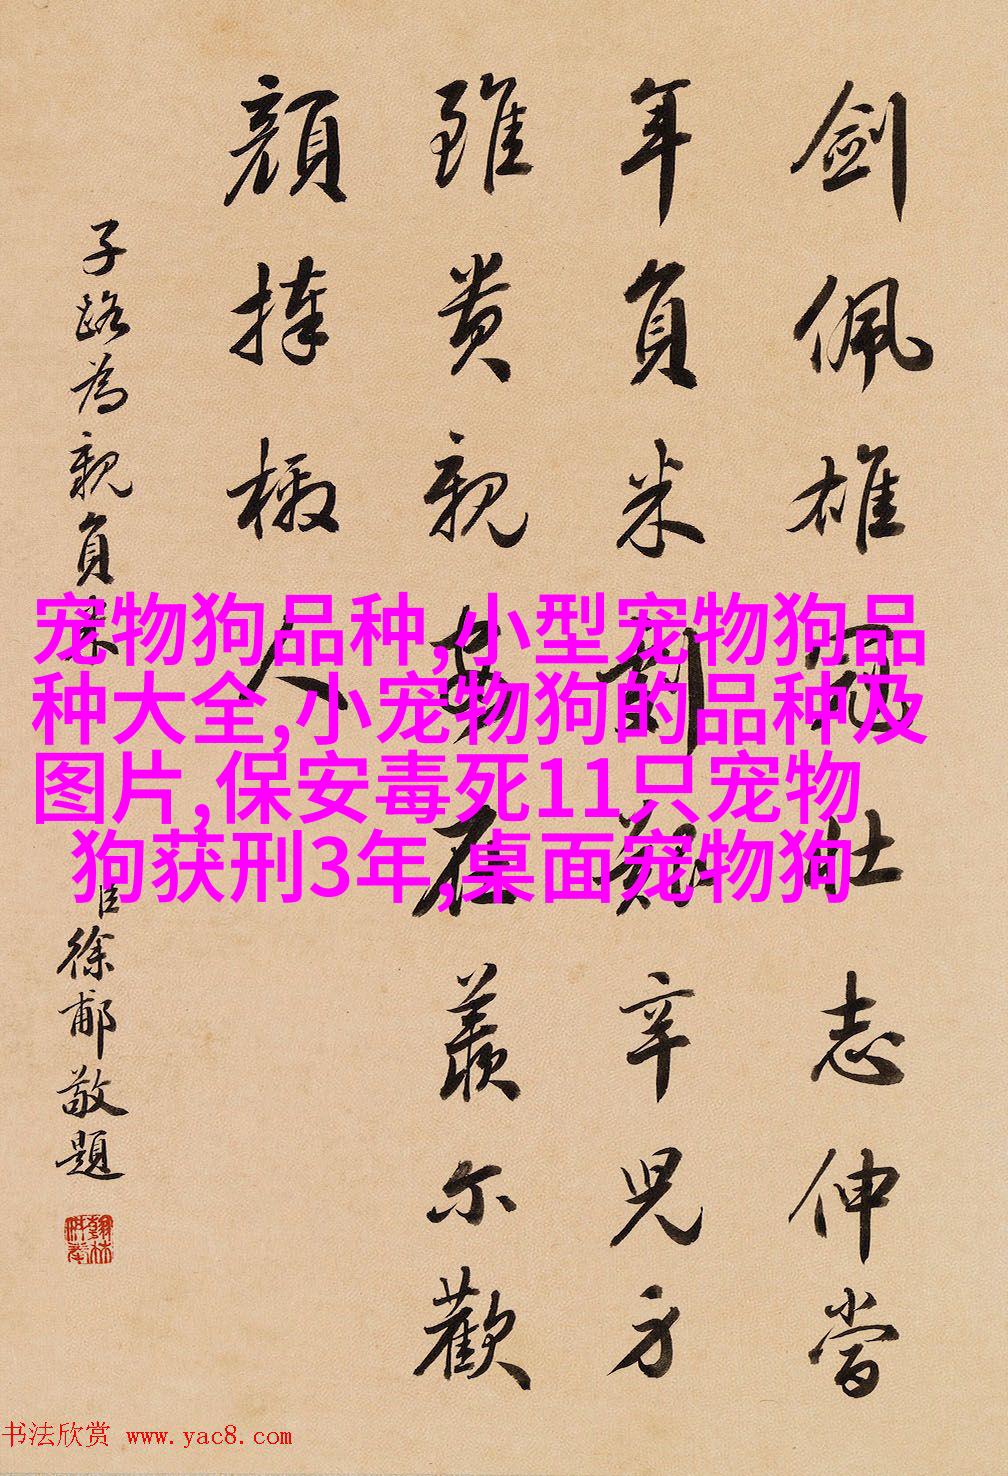 劍佩雄冠壯志伸當
年負米艱辛兒方
雖貴親安在羨尔歡
顏捧檄人
子路為親負米
臣徐郙敬題
宠物狗品种,小型宠物狗品
种大全,小宠物狗的品种及
图片,保安毒死11只宠物
狗获刑3年,桌面宠物狗
书法欣赏 www.yac8.com